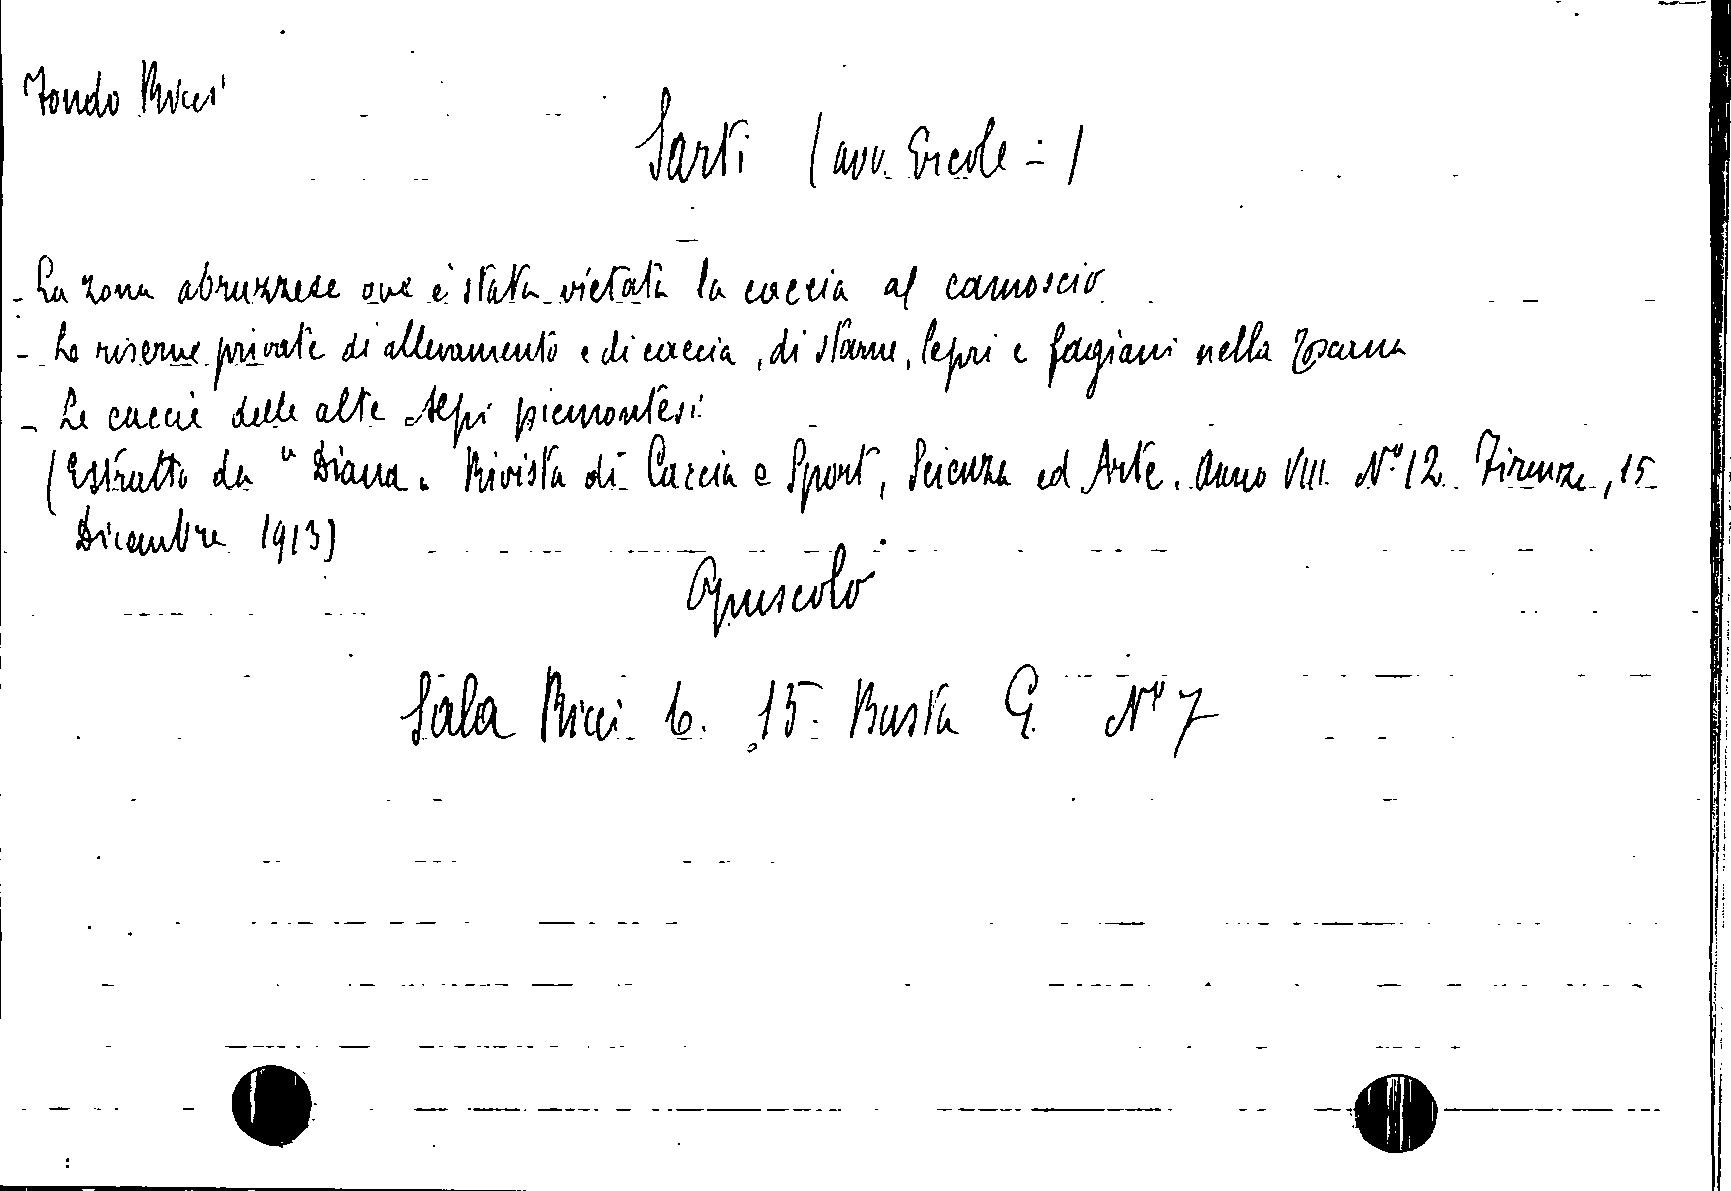 Fondo Ricci
Sarti (avv. Ercole = )
- La zona abruzzese ove è stata vietata la caccia al camoscio
- Le riserve private di allevamento e di caccia, di starne, lepri e fagiani nella Toscana
- Le caccie delle alte Alpi piemontesi
(Estratto da "Diana. Rivista di Caccia e Sport, Scienza ed Arte. Anno VIII. N.º 12. Firenze, 15
Dicembre 1913)
Opuscolo
Sala Ricci 6. 15. Busta G. Nº 7